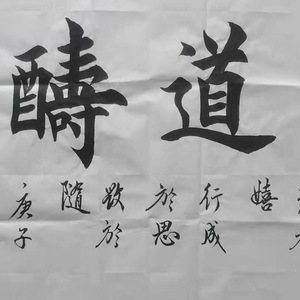 道醻
嬉
行成
於思
毀於
隨
庚子